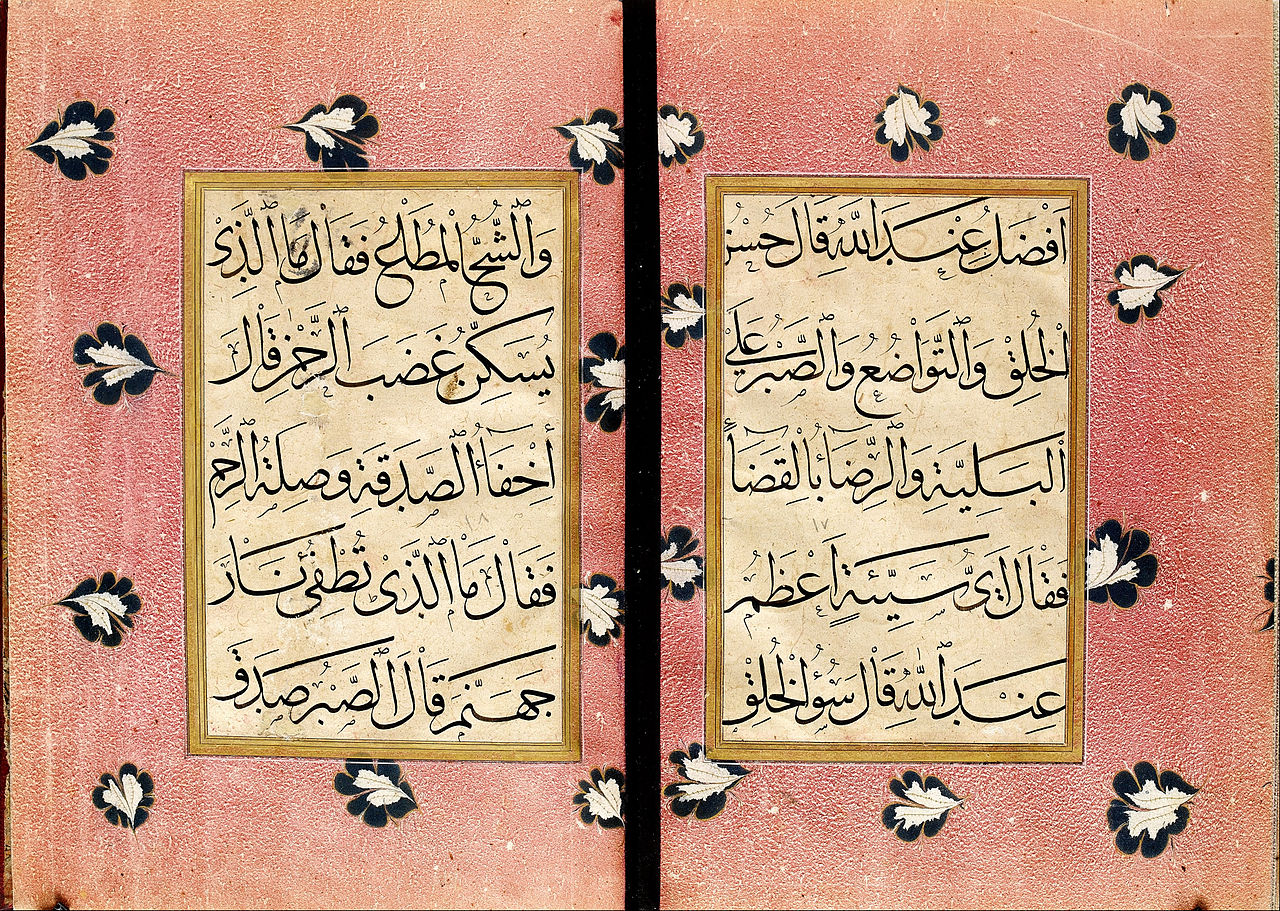 اَفْضَلُ عِنْدَ اللّٰهِ قَالَ حُسْنُ
الْخُلْقِ وَالتَّوَاضُعُ وَالصَّبْرُ عَلَى
الْبَلِيَّةِ وَالرِّضَاءُ بِالْقَضَاءِ
١٧
فَقَالَ اَيُّ سَيِّئَةٍ اَعْظَمُ
عِنْدَ اللّٰهِ قَالَ سُوءُ الْخُلْقِ
وَالشُّحُّ الْمُطَاعُ فَقَالَ مَا الَّذِي
يُسَكِّنُ غَضَبَ الرَّحْمٰنِ قَالَ
اَخْفَاءُ الصَّدَقَةِ وَصِلَةُ الرَّحِمِ
١٨
فَقَالَ مَا الَّذِي تُطْفِئُ نَارَ
جَهَنَّمَ قَالَ الصَّبْرُ صَدَقَ